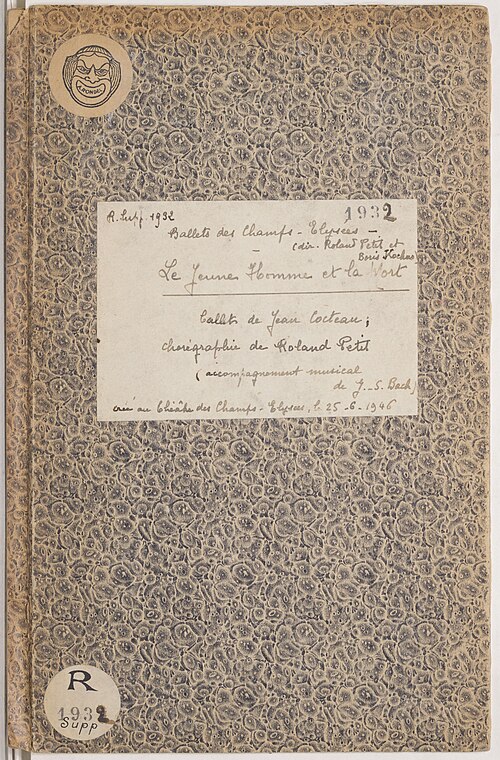 RONDEL
R. Supp. 1932
1932
Ballets des Champs-Elysées -
(dir. Roland Petit et
Boris Kochno)
Le Jeune Homme et la Mort
ballet de Jean Cocteau;
chorégraphie de Roland Petit
(accompagnement musical
de J.-S. Bach)
créé au théâtre des Champs-Elysées, le 25-6-1946
R
1932
Supp